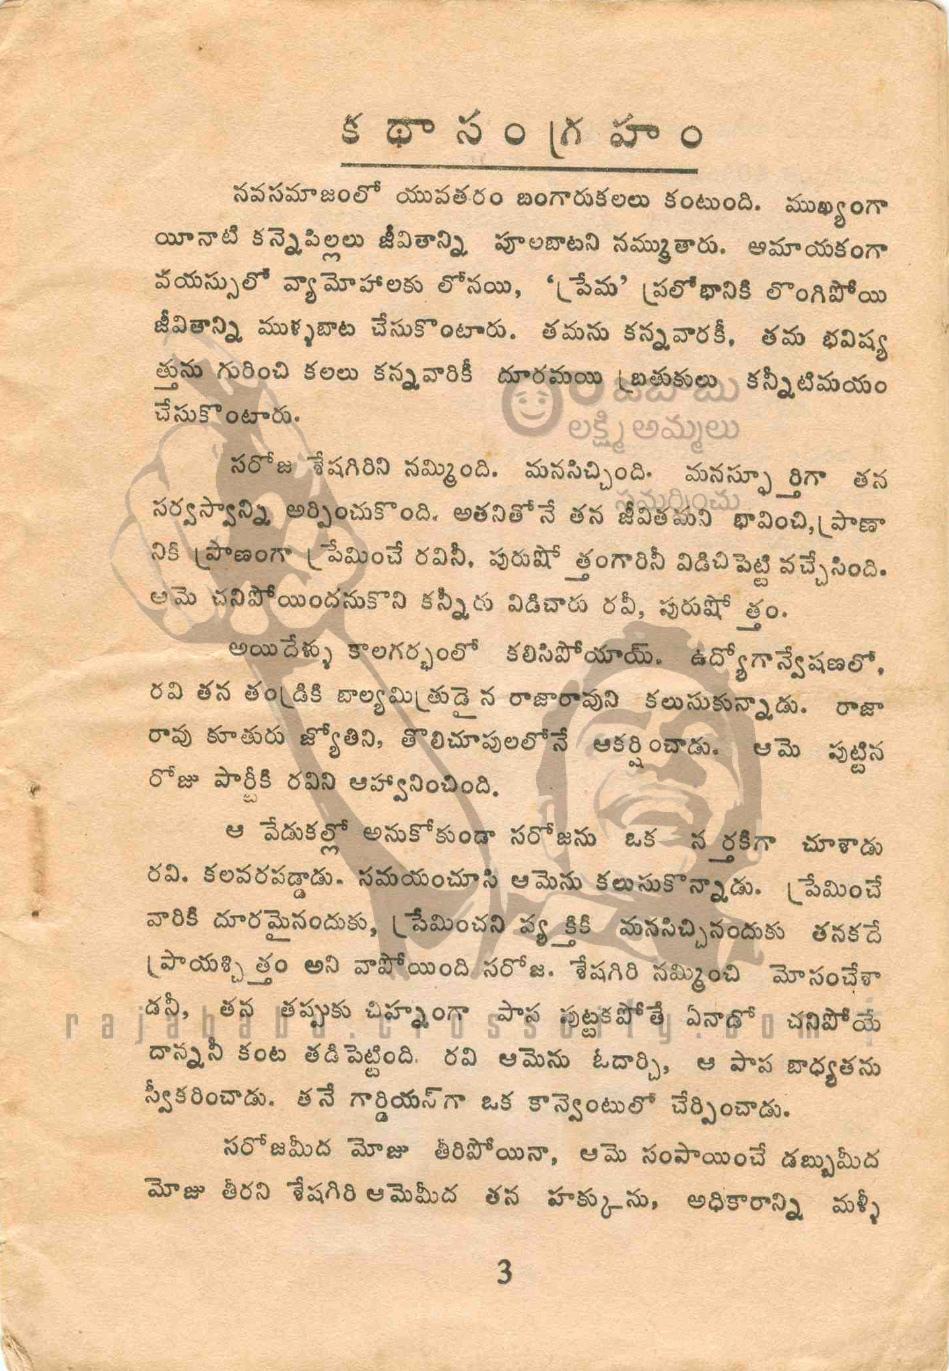 కథాసంగ్రహం
నవసమాజంలో యువతరం బంగారుకలలు కంటుంది. ముఖ్యంగా
యీనాటి కన్నెపిల్లలు జీవితాన్ని పూలబాటని నమ్ముతారు. అమాయకంగా
వయస్సులో వ్యామోహాలకు లోనయి, ‘ప్రేమ’ ప్రలోభానికి లొంగిపోయి
జీవితాన్ని ముళ్ళబాట చేసుకొంటారు. తమను కన్నవారకీ, తమ భవిష్య
త్తును గురించి కలలు కన్నవారికీ దూరమయి బ్రతుకులు కన్నీటిమయం
చేసుకొంటారు.
లక్ష్మి అమ్మలు
సమర్పించు
సరోజ శేషగిరిని నమ్మింది. మనసిచ్చింది. మనస్ఫూర్తిగా తన
సర్వస్వాన్ని అర్పించుకొంది. అతనితోనే తన జీవితమని భావించి, ప్రాణా
నికి ప్రాణంగా ప్రేమించే రవినీ, పురుషోత్తంగారినీ విడిచిపెట్టి వచ్చేసింది.
ఆమె చనిపోయిందనుకొని కన్నీరు విడిచారు రవీ, పురుషోత్తం.
అయిదేళ్ళు కాలగర్భంలో కలిసిపోయాయ్. ఉద్యోగాన్వేషణలో,
రవి తన తండ్రికి బాల్యమిత్రుడైన రాజారావుని కలుసుకున్నాడు. రాజా
రావు కూతురు జ్యోతిని, తొలిచూపులలోనే ఆకర్షించాడు. ఆమె పుట్టిన
రోజు పార్టీకి రవిని ఆహ్వానించింది.
ఆ వేడుకల్లో అనుకోకుండా సరోజను ఒక నర్తకిగా చూశాడు
రవి. కలవరపడ్డాడు. సమయంచూసి ఆమెను కలుసుకొన్నాడు. ప్రేమించే
వారికి దూరమైనందుకు, ప్రేమించని వ్యక్తికి మనసిచ్చినందుకు తనకదే
ప్రాయశ్చిత్తం అని వాపోయింది సరోజ. శేషగిరి నమ్మించి మోసంచేశా
డనీ, తన తప్పుకు చిహ్నంగా పాప పుట్టకపోతే ఏనాడో చనిపోయే
rajababu.crossorly.com
దాన్ననీ కంట తడిపెట్టింది. రవి ఆమెను ఓదార్చి, ఆ పాప బాధ్యతను
స్వీకరించాడు. తనే గార్డియన్‌గా ఒక కాన్వెంటులో చేర్పించాడు.
సరోజమీద మోజు తీరిపోయినా, ఆమె సంపాయించే డబ్బుమీద
మోజు తీరని శేషగిరి ఆమెమీద తన హక్కును, అధికారాన్ని మళ్ళీ
3